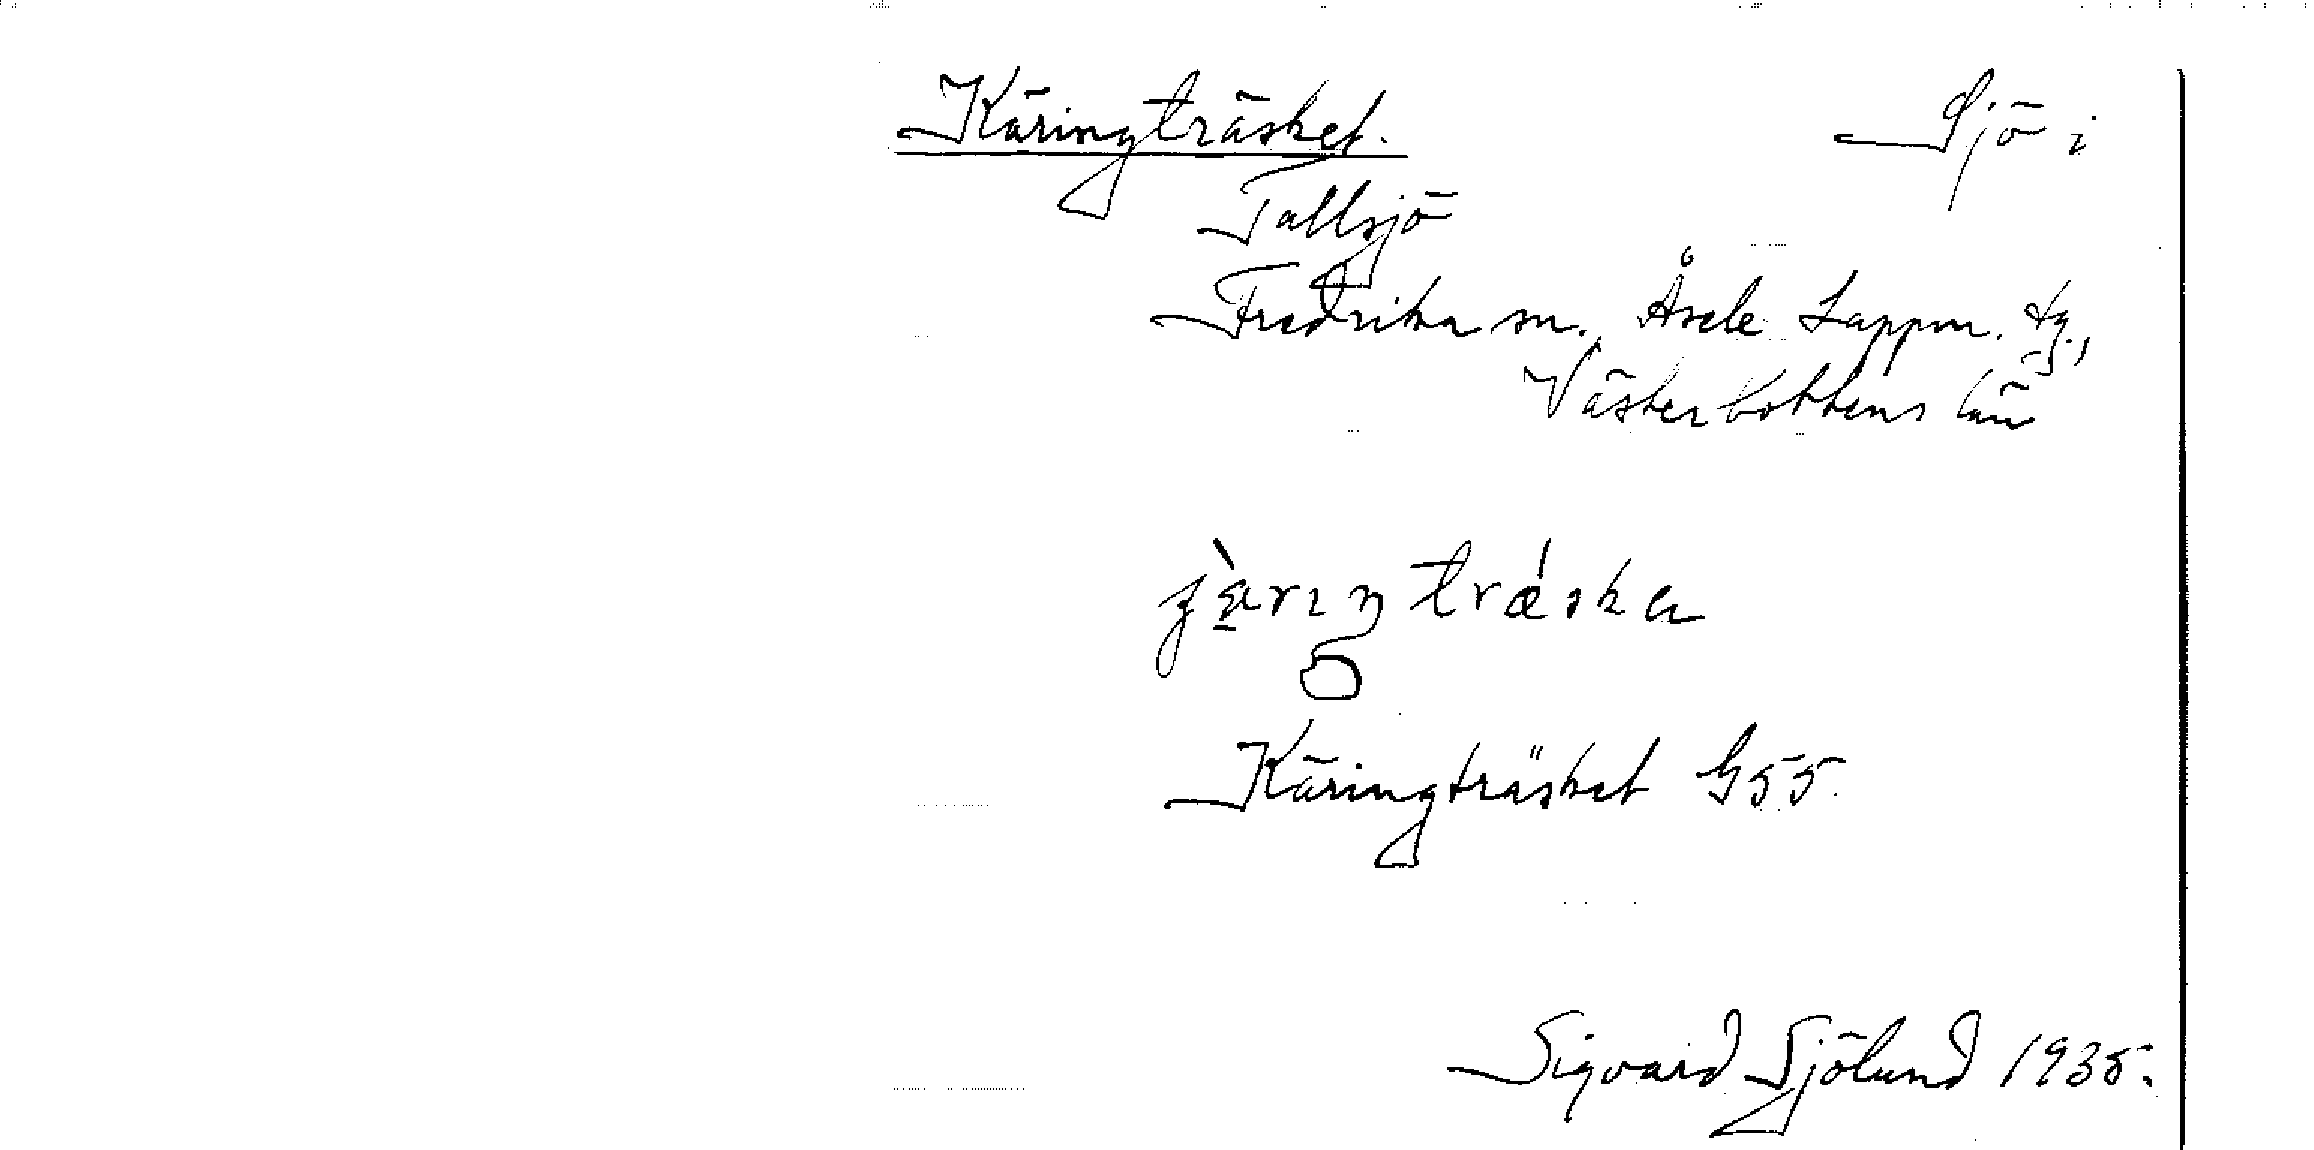 Käringträsket. Sjö i
Tallsjö
Fredrika sn. Åsele Lappm. tg.,
Västerbottens län
Käringträsket G55.
Sigvard Sjölund 1935.